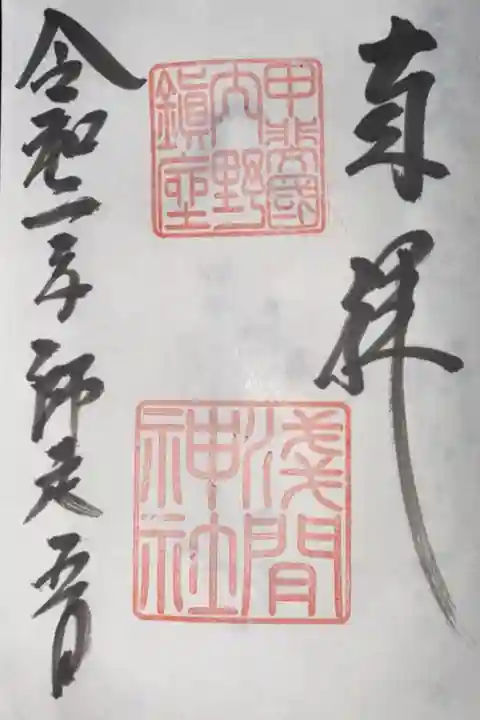 奉拝
甲斐國
内野
鎭座
淺間
神社
令和二年師走五日